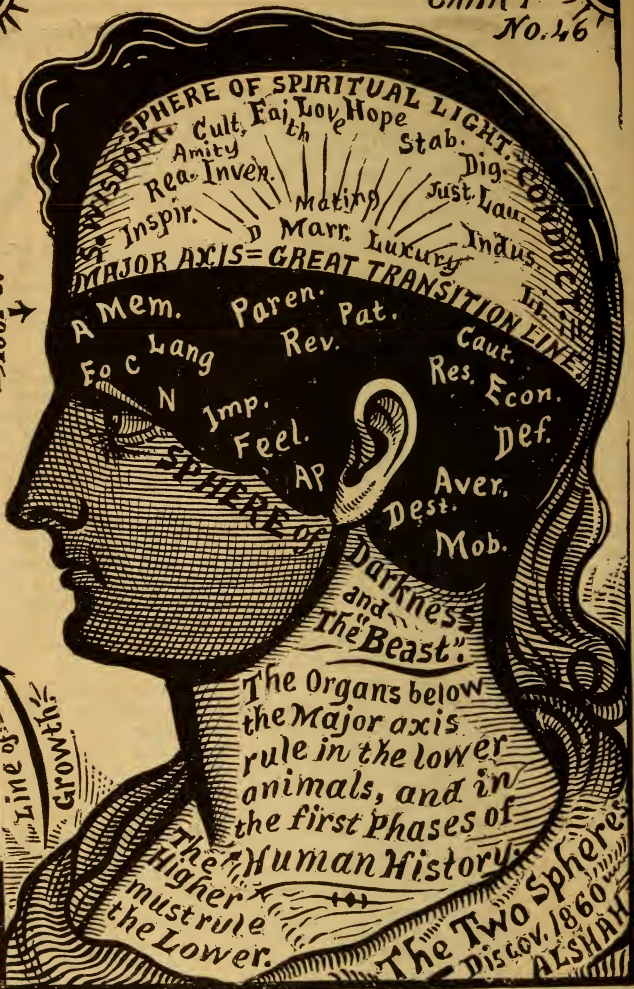 No. 46
SPHERE OF SPIRITUAL LIGHT.
S. WISDOM.
CONDUCT=
Cult.
Faith
Love
Hope
Stab.
Amity
Dig.
Rea.
Inven.
Mating
Just.
Lau.
Inspir.
D
Marr.
Luxury
Indus.
Li.
MAJOR AXIS = GREAT TRANSITION LINE
A
Mem.
Paren.
Pat.
Rev.
Caut.
Lang
Fo
C
Res.
Econ.
N
Imp.
Def.
Feel.
AP
Aver.
Dest.
Mob.
SPHERE OF
Darkness
and
The "Beast".
The Organs below
the Major axis
rule in the lower
animals, and in
the first Phases of
Human History.
The
Higher
must rule
the Lower.
Line of
Growth.
The Two Spheres
Discov. 1860
ALSHAH